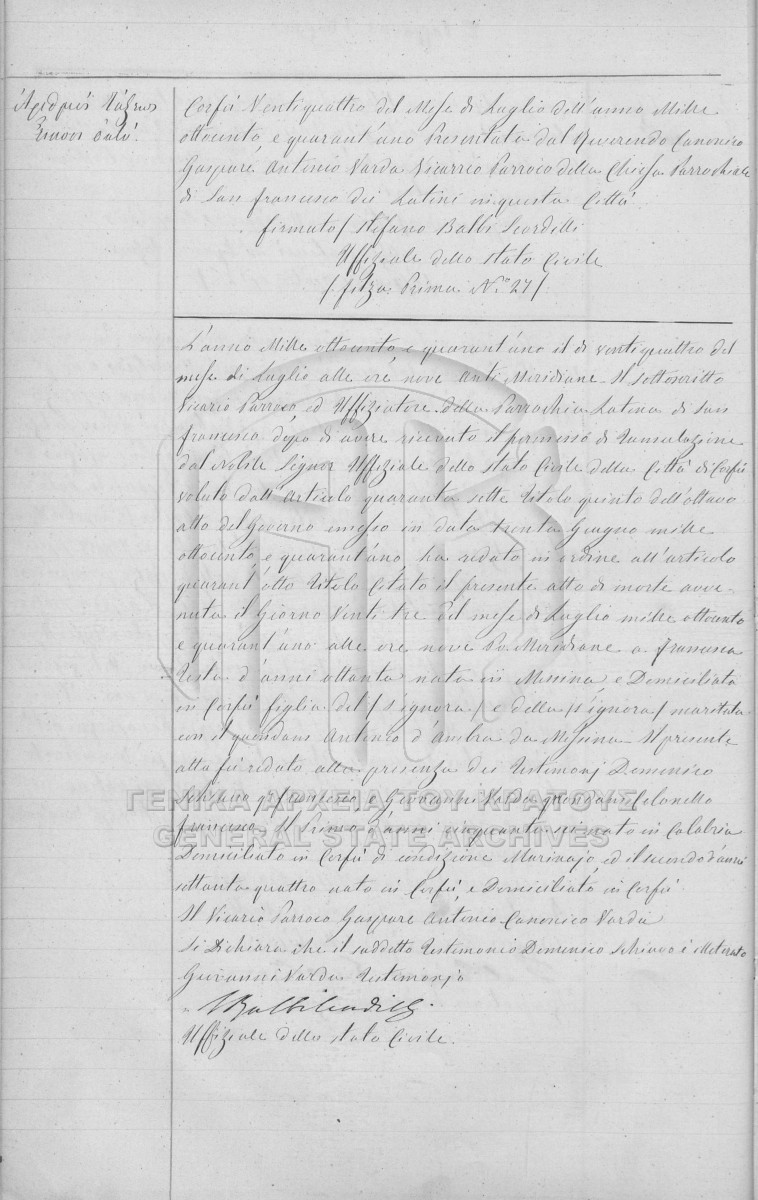 Ἀριθμός τάξεως
εἴκοσι ὀκτώ.
Corfù Ventiquattro del Mese di Luglio dell'anno Mille
ottocento, e quarant'uno Presentato dal Reverendo Canonico
Gaspare Antonio Varda Vicario Parroco della Chiesa Parrochiale
di San Francesco dei Latini in questa Città
firmato / Stefano Balbi Scordilli
Uffiziale dello stato Civile
/. filza: Prima N.º 27/.
L'anno Mille ottocento, e quarant'uno il di venti quattro del
mese di Luglio alle ore nove Anti Meridiane. Il sottoscritto
Vicario Parroco, ed Uffiziatore della Parrochia Latina di San
Francesco, dopo di avere ricevuto il permesso di tumulazione
dal Nobile Signor Uffiziale dello stato Civile della Città di Corfù
voluto dall'Articolo quaranta sette Titolo quinto dell'ottavo
atto del Governo emesso in data trenta Giugno mille
ottocento, e quarant'uno, ha redato in ordine all'articolo
quarant'otto Titolo Citato il presente atto di morte avve-
nuta il Giorno Venti tre del mese di Luglio mille ottocento
e quarant'uno alle ore nove Po. Meridiane a Francesca
Testa d'anni ottanta nata in Messina, e Domiciliata
in Corfù figlia del /s'ignora/ e della /s'ignora/ maritata
con il quondam Antonio d'Ambra da Messina. Il presente
atto fù redato alla presenza dei Testimonj Domenico
Schiavo q.m Francesco e Giovanni Varda quondam Colonello
Francesco. Il Primo d'anni cinquanta sei nato in Calabria
Domiciliato in Corfù di condizione Marinajo, ed il secondo d'anni
settanta quattro nato in Corfù, e Domiciliato in Corfù
Il Vicario Parroco Gaspare Antonio Canonico Varda
Si Dichiara che il suddetto Testimonio Domenico Schiavo è illeterato
Giovanni Varda Testimonjo
Uffiziale dello stato Civile.
ΓΕΝΙΚΑ ΑΡΧΕΙΑ ΤΟΥ ΚΡΑΤΟΥΣ
GENERAL STATE ARCHIVES